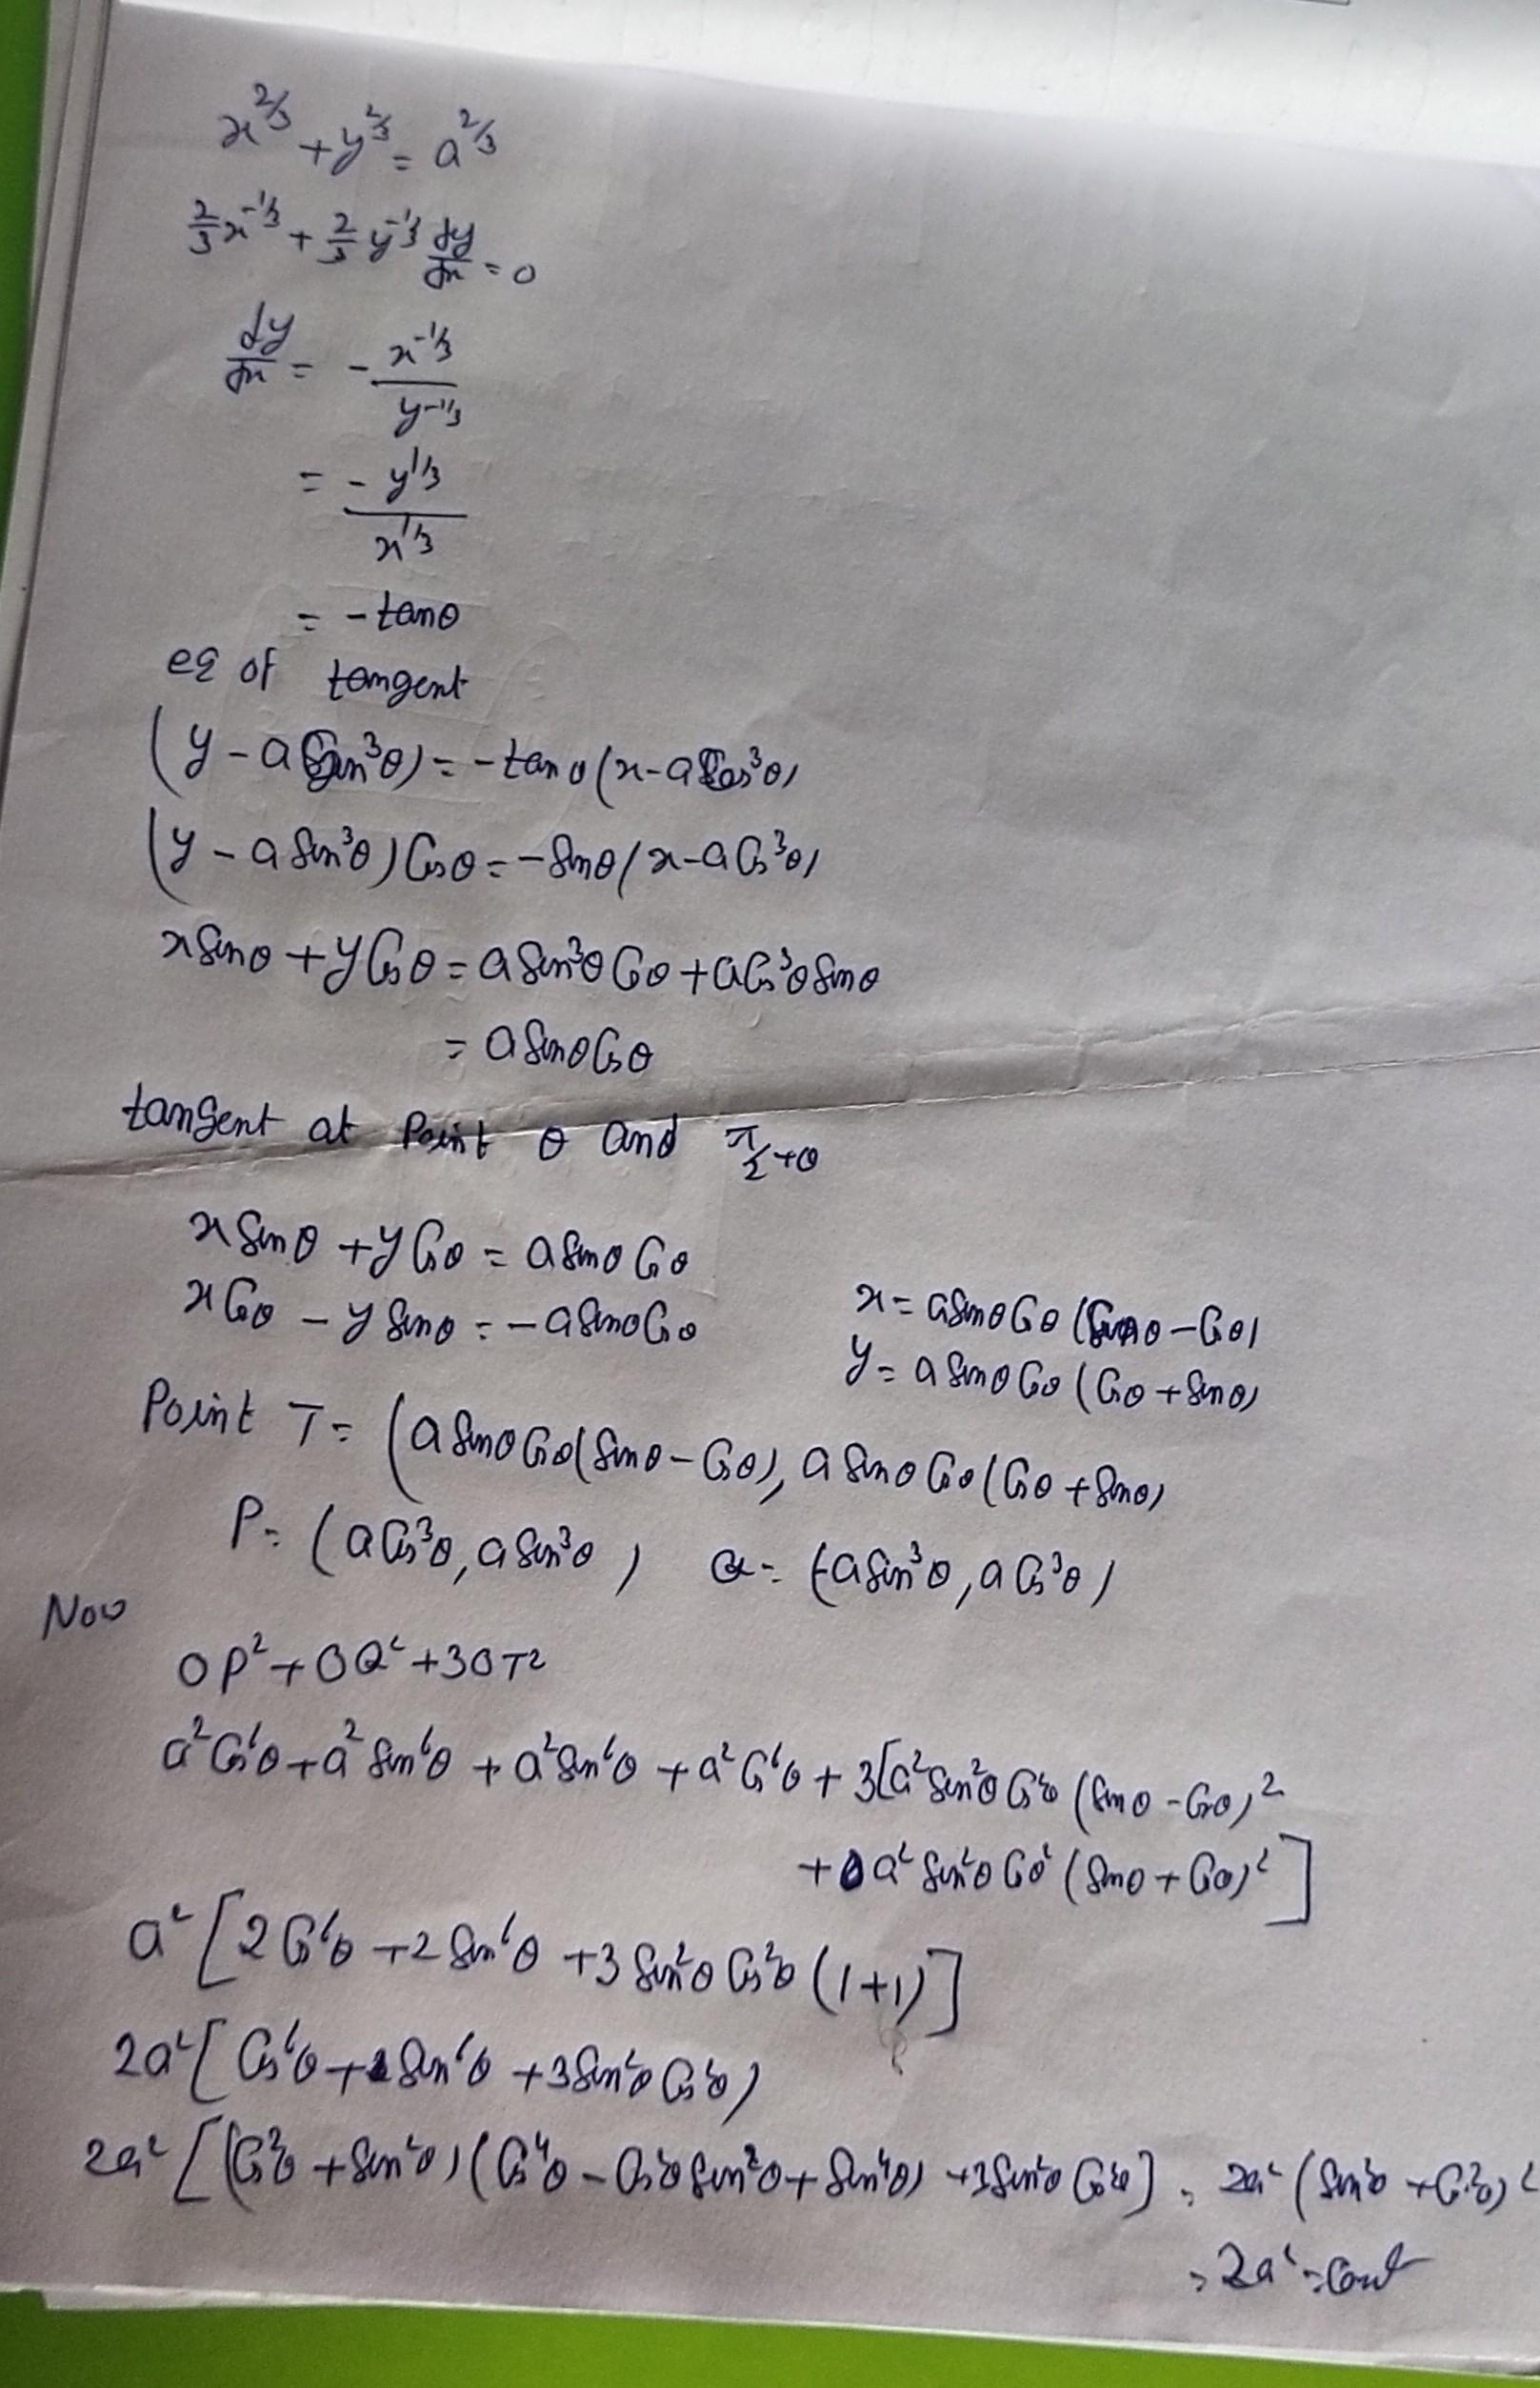 x^{2/3} + y^{2/3} = a^{2/3}
2/3 x^{-1/3} + 2/3 y^{-1/3} dy/dx = 0
dy/dx = - x^{-1/3} / y^{-1/3}
= - y^{1/3} / x^{1/3}
= - tanθ
eq of tangent
(y - a Sin³θ) = - tanθ (x - a Cos³θ)
(y - a Sin³θ) Cosθ = - Sinθ (x - a Cos³θ)
x Sinθ + y Cosθ = a Sin³θ Cosθ + a Cos³θ Sinθ
= a Sinθ Cosθ
tangent at Point θ and π/2 + θ
x Sinθ + y Cosθ = a Sinθ Cosθ
x Cosθ - y Sinθ = - a Sinθ Cosθ
x = a Sinθ Cosθ (Sinθ - Cosθ)
y = a Sinθ Cosθ (Cosθ + Sinθ)
Point T = (a Sinθ Cosθ (Sinθ - Cosθ), a Sinθ Cosθ (Cosθ + Sinθ)
P = (a Cos³θ, a Sin³θ) Q = (-a Sin³θ, a Cos³θ)
Now
OP² + OQ² + 3OT²
a² Cos⁶θ + a² Sin⁶θ + a² Sin⁶θ + a² Cos⁶θ + 3[a² Sin²θ Cos²θ (Sinθ - Cosθ)²
+ a² Sin²θ Cos²θ (Sinθ + Cosθ)²]
a² [2 Cos⁶θ + 2 Sin⁶θ + 3 Sin²θ Cos²θ (1+1)]
2a² [Cos⁶θ + Sin⁶θ + 3 Sin²θ Cos²θ)
2a² [(Cos²θ + Sin²θ) (Cos⁴θ - Cos²θ Sin²θ + Sin⁴θ) + 3 Sin²θ Cos²θ] = 2a² (Sin²θ + Cos²θ)²
= 2a² = Const